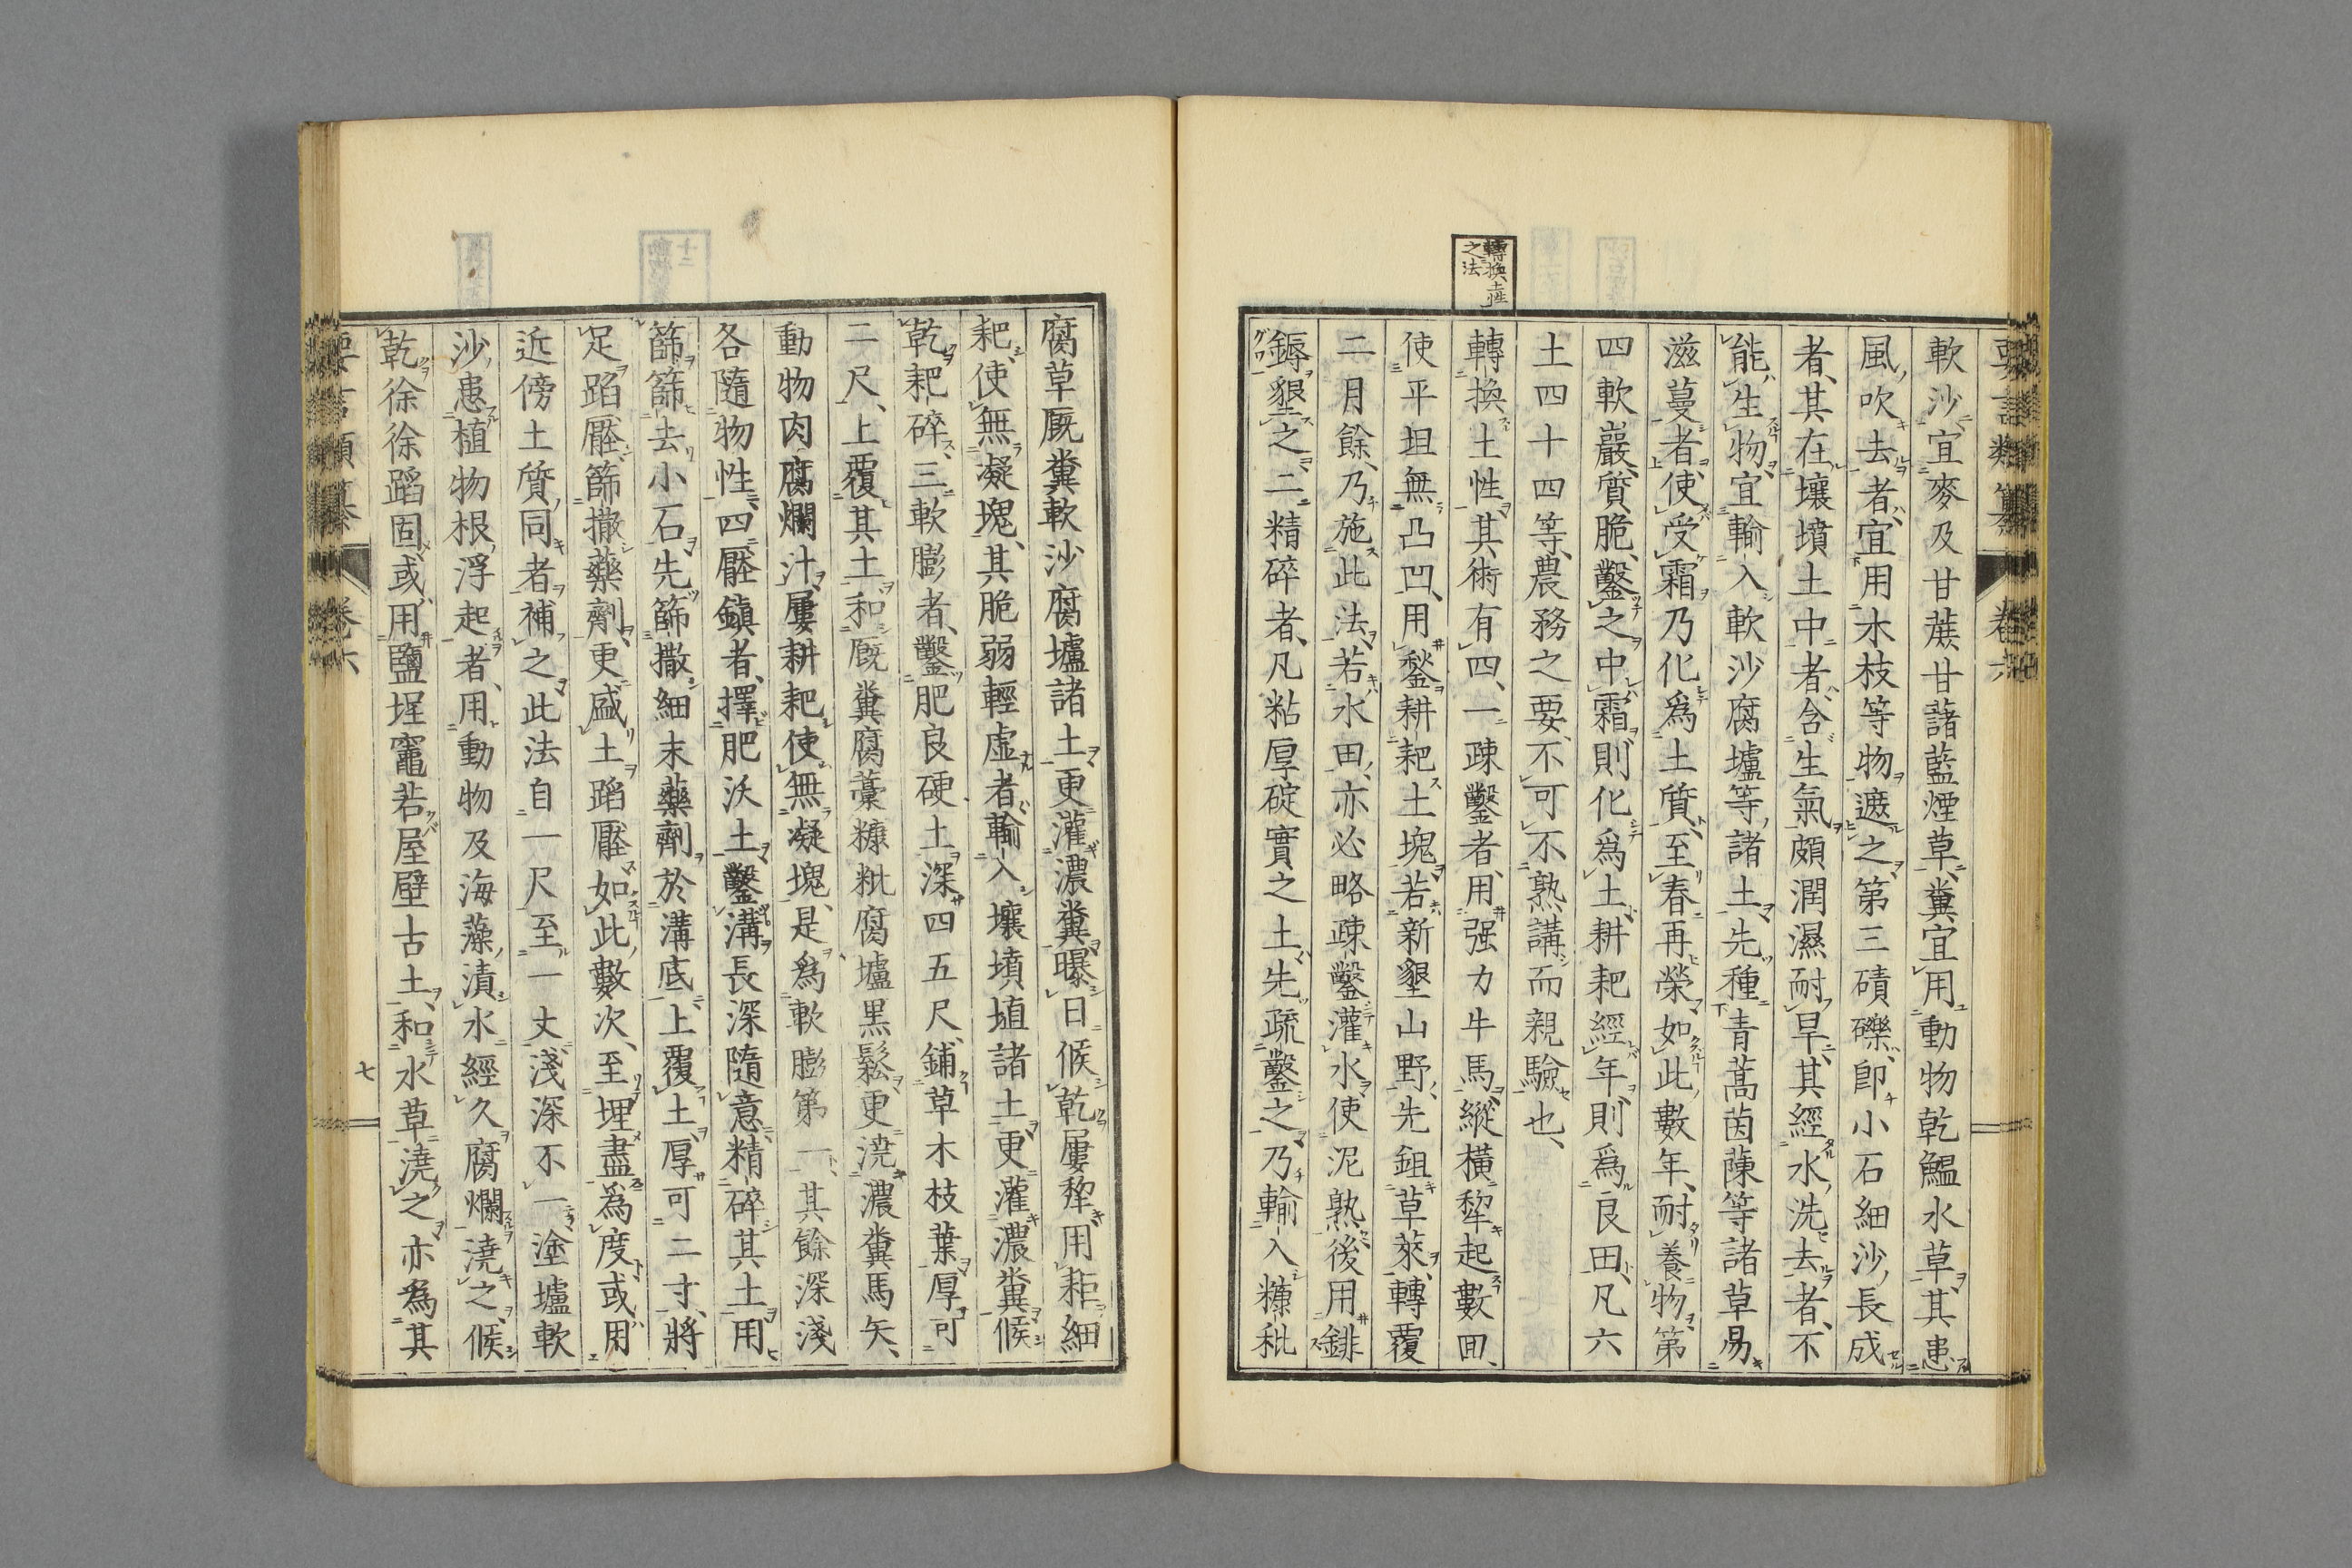 要言類纂 卷六
軟沙宜麥及甘蔗甘藷藍煙草糞宜用動物乾鰮水草其患
風吹去者宜用木枝等物遮之第三磧礫即小石細沙長成
者、其在壤墳土中者含生氣頗潤濕耐旱其經水洗去者、不
能生物宜輸入軟沙腐壚等諸土先種青蒿茵蔯等諸草易
滋蔓者使受霜乃化爲土質至春再榮如此數年耐養物第
四軟巖質脆鑿之中霜則化爲土耕耙經年則爲良田凡六
土四十四等、農務之要不可不熟講而親驗也、
轉換土性之法
轉換土性其術有四、一疎鑿者、用强力牛馬縱橫犂起數回、
使平坦無凸凹、用鍫耕耙土塊若新墾山野先鉏草萊轉覆
二月餘、乃施此法若水田亦必略疎鑿灌水使泥熟後用
鎒墾之二精碎者、凡粘厚碇實之土先疏鑿之乃輸入糠秕
腐草厩糞軟沙腐壚諸土更灌濃糞曝日候乾屢犂用耟細
耙使無凝塊、其脆弱輕虛者輸入壤墳埴諸土更灌濃糞候
乾耙碎三軟膨者、鑿肥良硬土深四五尺、鋪草木枝葉厚可
二尺、上覆其土和厩糞腐藁糠粃腐壚黑鬆更澆濃糞馬矢、
動物肉腐爛汁屢耕耙使無凝塊、是爲軟膨第一其餘深淺
各隨物性四壓鎮者、擇肥沃土鑿溝長深隨意精碎其土用
篩篩去小石先篩撒細末藥劑於溝底上覆土厚可二寸、將
足蹈壓篩撒藥劑更盛土蹈壓如此數次、至埋盡爲度或用
近傍土質同者補之此法自一尺至一丈淺深不一塗壚軟
沙患植物根浮起者、用動物及海藻漬水經久腐爛澆之候
乾徐徐蹈固或用鹽埕竈若屋壁古土和水草澆之亦爲其
卷六
七